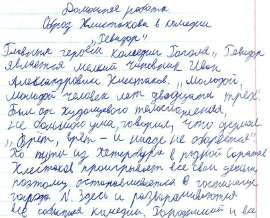 Домашняя работа
Образ Хлестакова в комедии
"Ревизор"
Главным героем комедии Гоголя "Ревизор
является мелкий чиновник Иван
Александрович Хлестаков. "Молодой,
молодой человек лет двадцати трех.
Был он худощавого телосложения,
не большого ума, говорил, что думал
"Врёт, врёт – и нигде не оборвётся"
По пути из Петербурга в родной Саратов
Хлестаков проигрывает все свои деньги,
поэтому останавливается в гостинице
города N. Здесь и разыгрываются
все события комедии. Городничий и все